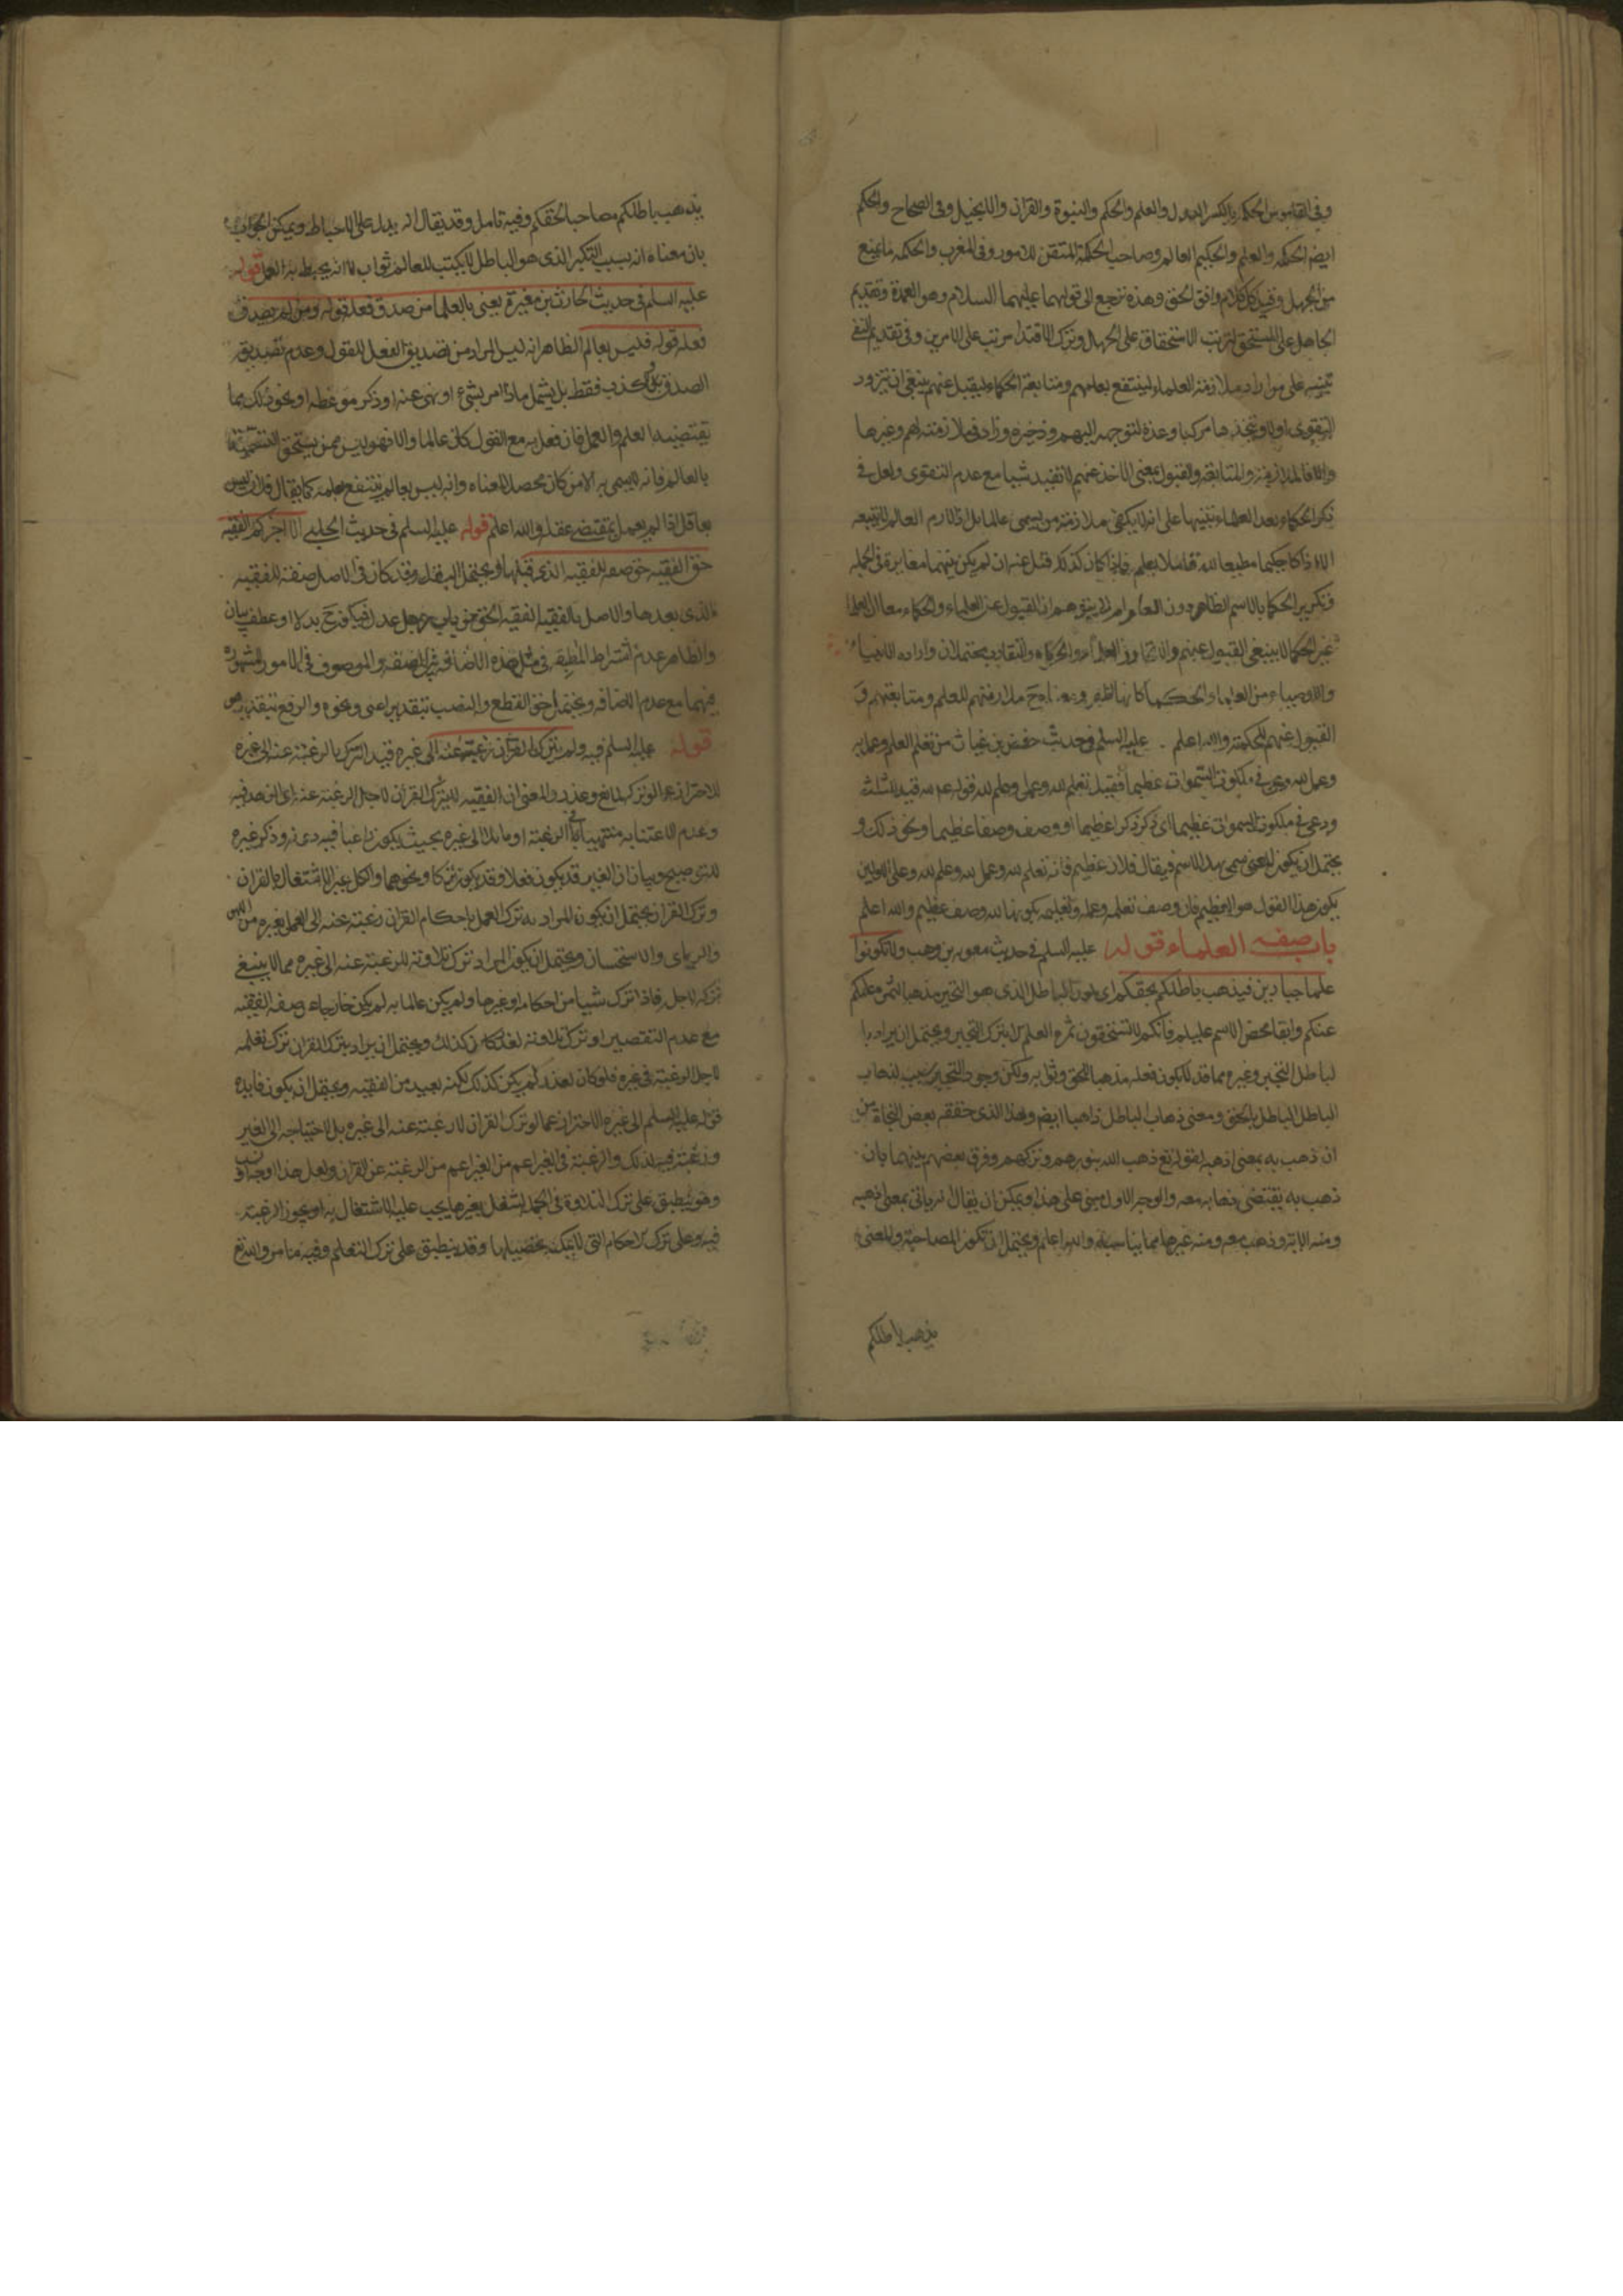 وفى القاموس الحكمة بالكسر العدل والعلم والحكم والنبوة والقران والانجيل وفى الصحاح والحكم
ايضا الحكمة والعلم والحكيم العالم وصاحب الحكمة المتقن للامور وفى المغرب والحكمة ما يمنع
من الجهل وقيل كل كلام وافق الحق وهذه ترجع الى قولهما عليهما السلام وهو العمدة وتقديم
الجاهل على المستحق لترتب الاستحقاق على الجهل وترك الاقتدا مرتب على الامرين وفى تقديم التقى
تنبيه على من اراد ملازمة العلماء لينتفع بعلمهم ومتابعة الحكماء ليقبل عنهم ينبغى ان يتزود
التقوى اولا ويتخذها مركبا وعدة لتوجهه اليهم وذخيره وزاد فى ملازمته لهم وغيرها
والا فالملازمة والمتابعة والقبول بمعنى الاخذ عنهم لا تفيد شيا مع عدم التقوى ولعل فى
ذكر الحكماء بعد العلماء تنبيها على انه لا يكفى ملازمة من يسمى عالما بل اذا لازم العالم لا يتبعه
الا اذا كان حكيما مطيعا لله قابلا بعلم فاذا كان كذلك قبل عنه ان لم يكن بينهما مغايرة فى الجملة
وتكرير الحكما بالاسم الظاهر دون لئلا يتوهم ان القبول عن العلماء والحكماء معا اذ العلما
غير الحكما لا ينبغى القبول عنهم والتقارب محتملان وارادة الانبياء
والاوصياء من العلماء والحكماء ملازمتهم للعلم ومتابعتهم و
القبول عنهم للحكمة والله اعلم . عليه السلم فى حديث حفص بن غياث من تعلم العلم وعمل به
وعمل لله دعى فى ملكوت السموات عظيما فقيل تعلم لله وعمل لله وعلم لله قوله لله قيد للثلثة
ودعى فى ملكوت السموات عظيما اى ذكر ذكرا عظيما او وصف وصفا عظيما ونحو ذلك و
يحتمل ان يكون المعنى سمى بهذا الاسم فيقال فلان عظيم فانه تعلم لله وعمل لله وعلم لله وعلى الاولين
يكون هذا القول هو العظيم فان وصف تعلمه وعمله وتعليمه بكونها لله وصف عظيم والله اعلم
باب صفة العلماء قوله عليه السلم فى حديث معوية بن وهب ولا تكونوا
علما جبارين فيذهب باطلكم بحقكم اى يكون الباطل الذى هو التجبر مذهبا لثمرة علمكم
عنكم وابقا محض الاسم عليكم فانكم لا تستحقون ثمره العلم الا بترك التجبر ويحتمل ان يراد با
لباطل التجبر وغيره مما قد لا يكون فعله مذهبا للحق وثوابه ولكن وجود التجبر سبب لذهاب
الباطل الباطل بالحق ومعنى ذهاب الباطل ذاهبا ايضا وهذا الذى حققه بعض النحاة من
ان ذهب به بمعنى اذهبه لقوله تع ذهب الله بنورهم وتركهم وفرق بعضهم بينهما بان
ذهب به يقتضى ذهابه معه والوجه الاول مبنى على هذا ويمكن ان يقال انه ياتى بمعنى اذهبه
ومنه الاية وذهب معه ومنه غيرها مما يناسبه والله اعلم ويحتمل ان تكون المصاحبة والمعنى
يذهب باطلكم
يذهب باطلكم مصاحبا لحقكم وفيه تامل وقد يقال انه يدل على الاحباط ويمكن الجواب
بان معناه انه بسبب التكبر الذى هو الباطل لا يكتب للعالم ثواب لا انه يحبط به العمل قوله
عليه السلم فى حديث الحارث بن مغيرة يعنى بالعلما من صدق فعله قوله ومن لم يصدق
فعله قوله فليس بعالم الظاهر انه ليس المراد من تصديق الفعل للقول وعدم تصديقه
الصدق والكذب فقط بل يشمل ما اذا امر بشيء او نهى عنه او ذكر موعظه او نحو ذلك مما
يقتضيه العلم والعمل فان فعل به مع القول كان عالما والا فهو ليس ممن يستحق التسمية
بالعالم فانه لا يسمى به الا من كان محصلا لمعناه وانه ليس بعالم ينتفع بعلمه كما يقال فلان ليس
بعاقل اذا لم يعمل بمقتضى عقله والله اعلم قوله عليه السلم فى حديث الحلبى الا اخبركم بالفقيه
حق الفقيه حق صفة للفقيه الذى قبلها ويحتمل البدل وقد كان فى الاصل صفة للفقيه
الذى بعدها والاصل بالفقيه الفقيه الحق من باب رجل عدل فيكون ح بدلا او عطف بيان
والظاهر عدم اشتراط المطابقة فى مثل هذه الاضافة بين الصفة والموصوف فى الامور المشهورة
فيهما مع عدم الاضافة ويحتمل حق القطع والنصب بتقدير اعنى ونحوه والرفع بتقدير هو
قوله عليه السلم فيه ولم يترك القران رغبة عنه الى غيره قيد الترك بالرغبة عنه الى غيره
للاحتراز عما لو ترك لمانع وعذر والمعنى ان الفقيه لا يترك القران لاجل الرغبة عنه اى الزهد فيه
وعدم الاعتنا به منتهيا فى الرغبة او مايلا الى غيره بحيث يكون راغبا فيه دونه وذكر غيره
للتوضيح وبيان ان الغير قد يكون فعلا وقد يكون تركا ونحوهما والكل غير الاشتغال بالقران
وترك القران يحتمل ان يكون المراد به ترك العمل باحكام القران رغبة عنه الى العمل بغيره من القياس
والراى والاستحسان ويحتمل ان يكون المراد ترك تلاوته للرغبة عنه الى غيره مما لا ينبغى
تركه لاجله فاذا ترك شيا من احكامه او غيرها ولم يكن عالما به لم يكن خارجا عن صفة الفقيه
مع عدم التقصير او ترك تلاوته لعذر كان كذلك ويحتمل ان يراد بترك القران ترك تعلمه
لاجل الرغبة فى غيره فلو كان لعذر لم يكن كذلك لكنه بعيد من الفقيه ويحتمل ان يكون فايدة
قوله عليه السلم الى غيره الاحتراز عما لو ترك القران لا رغبة عنه الى غيره بل لاحتياجه الى الغير
ورغبته فيه لذلك والرغبة فى الغير اعم من الغير اعم من الرغبة عن القران ولعل هذا اوجه
وهو ينطبق على ترك التلاوة فى الجملة لشغل بغيرها يجب عليه الاشتغال به او يجوز الرغبة
فيه وعلى ترك الاحكام التى لا يمكنه تحصيلها وقد ينطبق على ترك التعلم وفيه ما مر والله تع